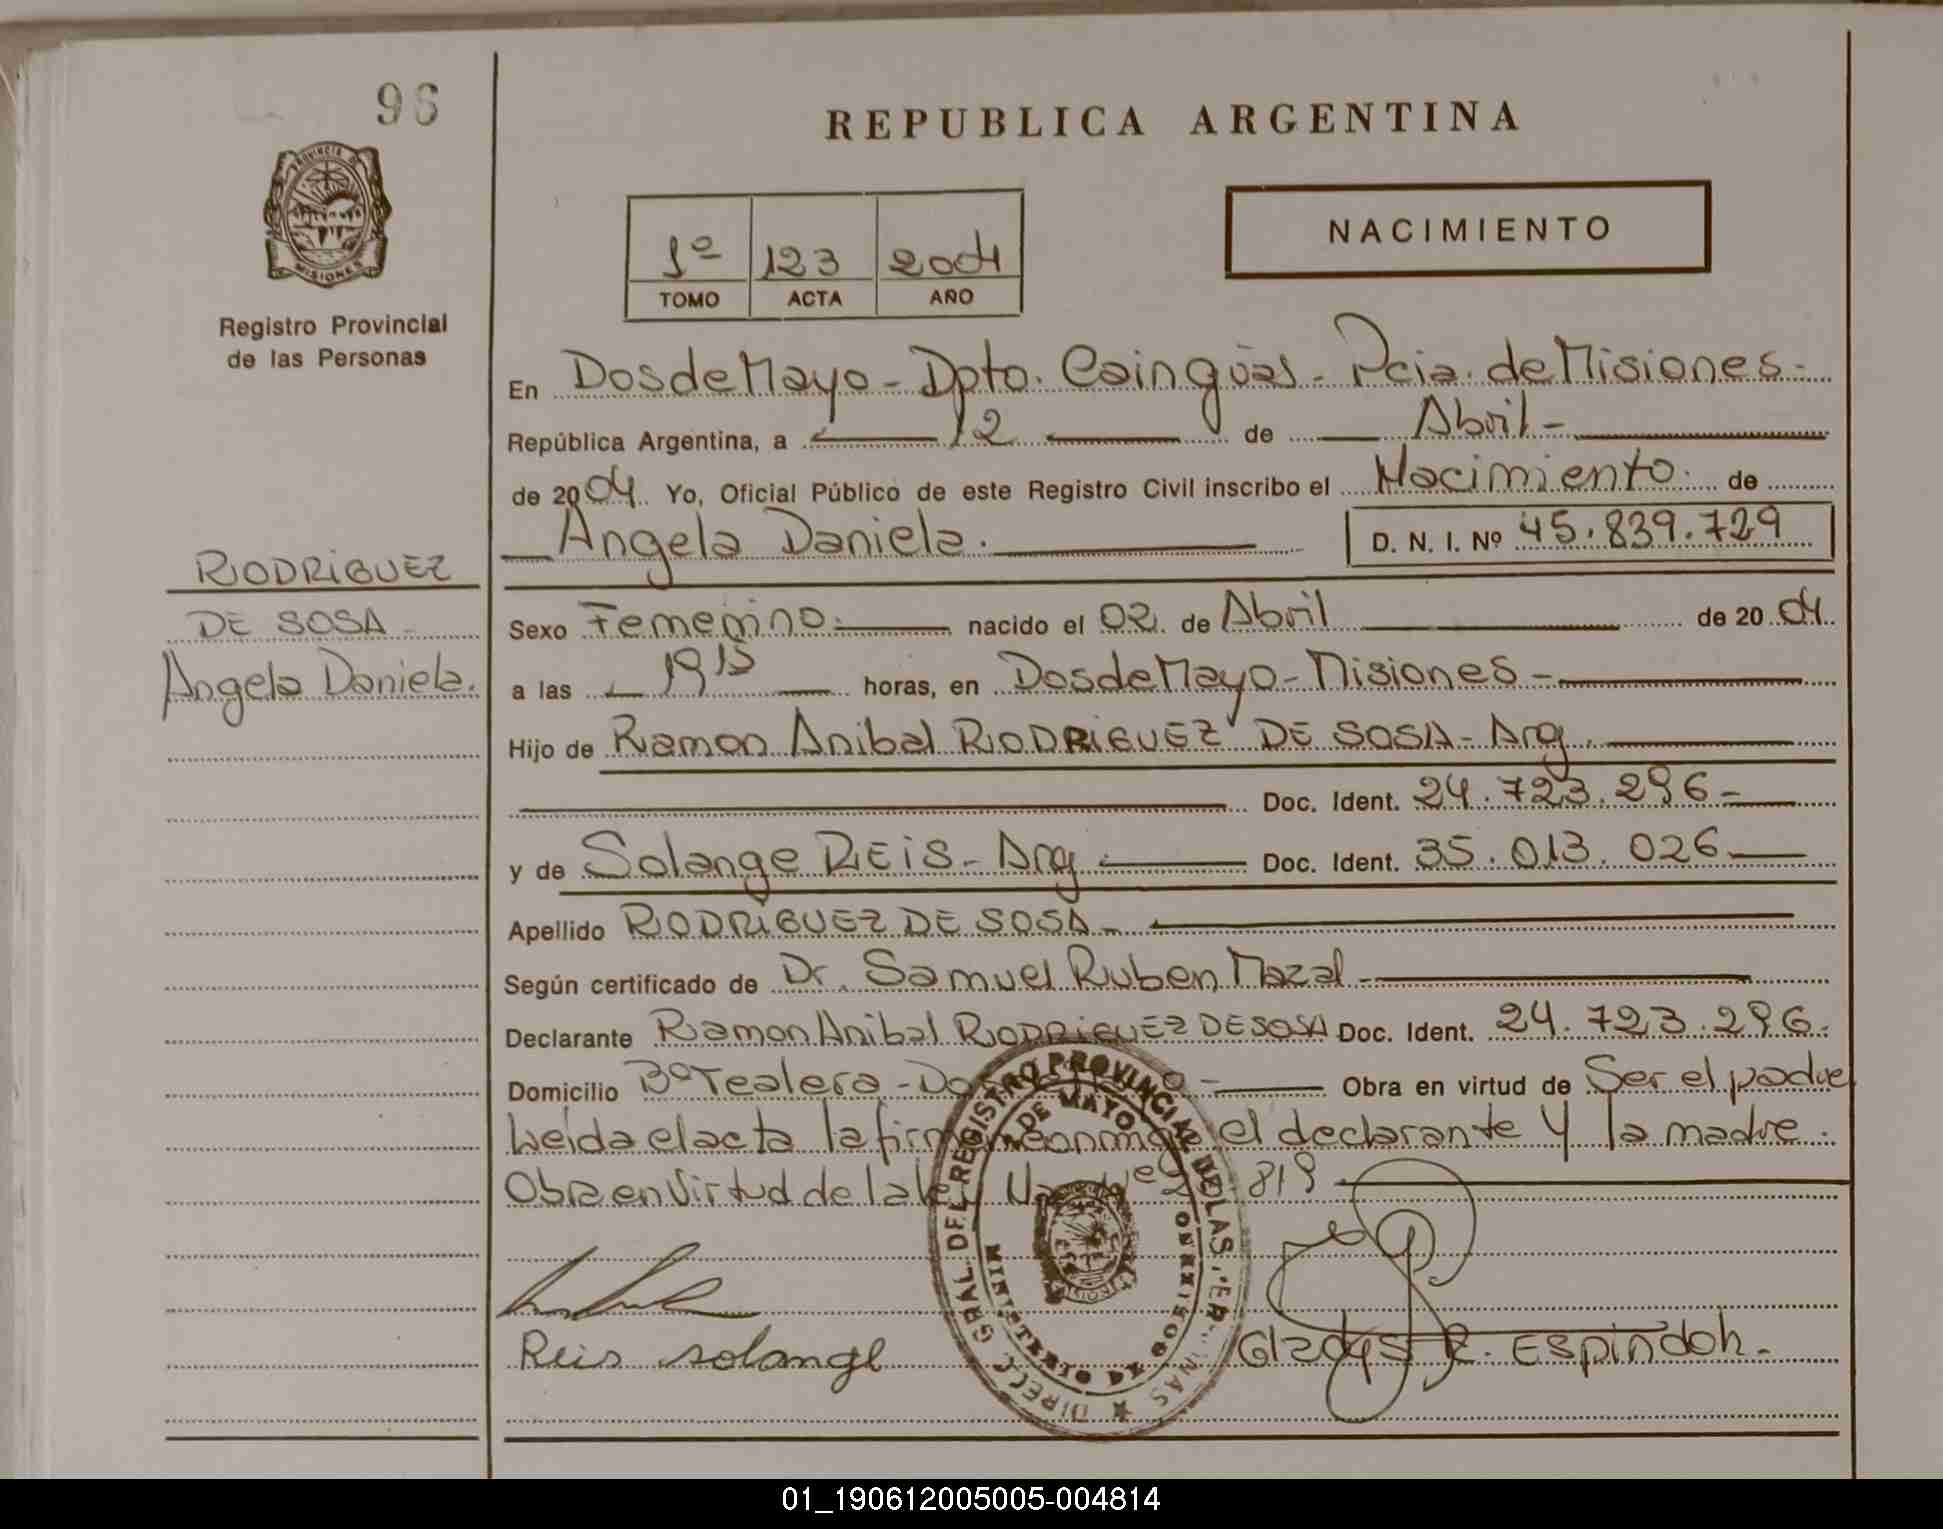 96
PROVINCIA DE
MISIONES
Registro Provincial
de las Personas
RODRIGUEZ
DE SOSA -
Angela Daniela.
REPUBLICA ARGENTINA
1º 123 2004
TOMO ACTA AÑO
NACIMIENTO
En Dos de Mayo - Dpto. Caingüas - Pcia. de Misiones -
República Argentina, a 12 de Abril -
de 2004. Yo, Oficial Público de este Registro Civil inscribo el Nacimiento. de
Angela Daniela. D. N. I. Nº 45.839.729
Sexo Femenino. nacido el 02 de Abril de 2004
a las 19 15 horas, en Dos de Mayo - Misiones -
Hijo de Ramon Anibal RODRIGUEZ DE SOSA - Arg.
Doc. Ident. 24.723.296 -
y de Solange REIS - Arg. Doc. Ident. 35.013.026
Apellido RODRIGUEZ DE SOSA -
Según certificado de Dr. Samuel Ruben Mazal -
Declarante Ramon Anibal RODRIGUEZ DE SOSA Doc. Ident. 24.723.296.
Domicilio Bº Tealera - Obra en virtud de Ser el padre
Leida el acta la firman conmigo el declarante y la madre.
Obra en virtud de la 819
Reis solange
Gladys R. Espindola.
DIRECC. GRAL. DEL REGISTRO PROVINCIAL DE LAS PERSONAS
DE MAYO
MINISTERIO DE GOBIERNO
01_190612005005-004814